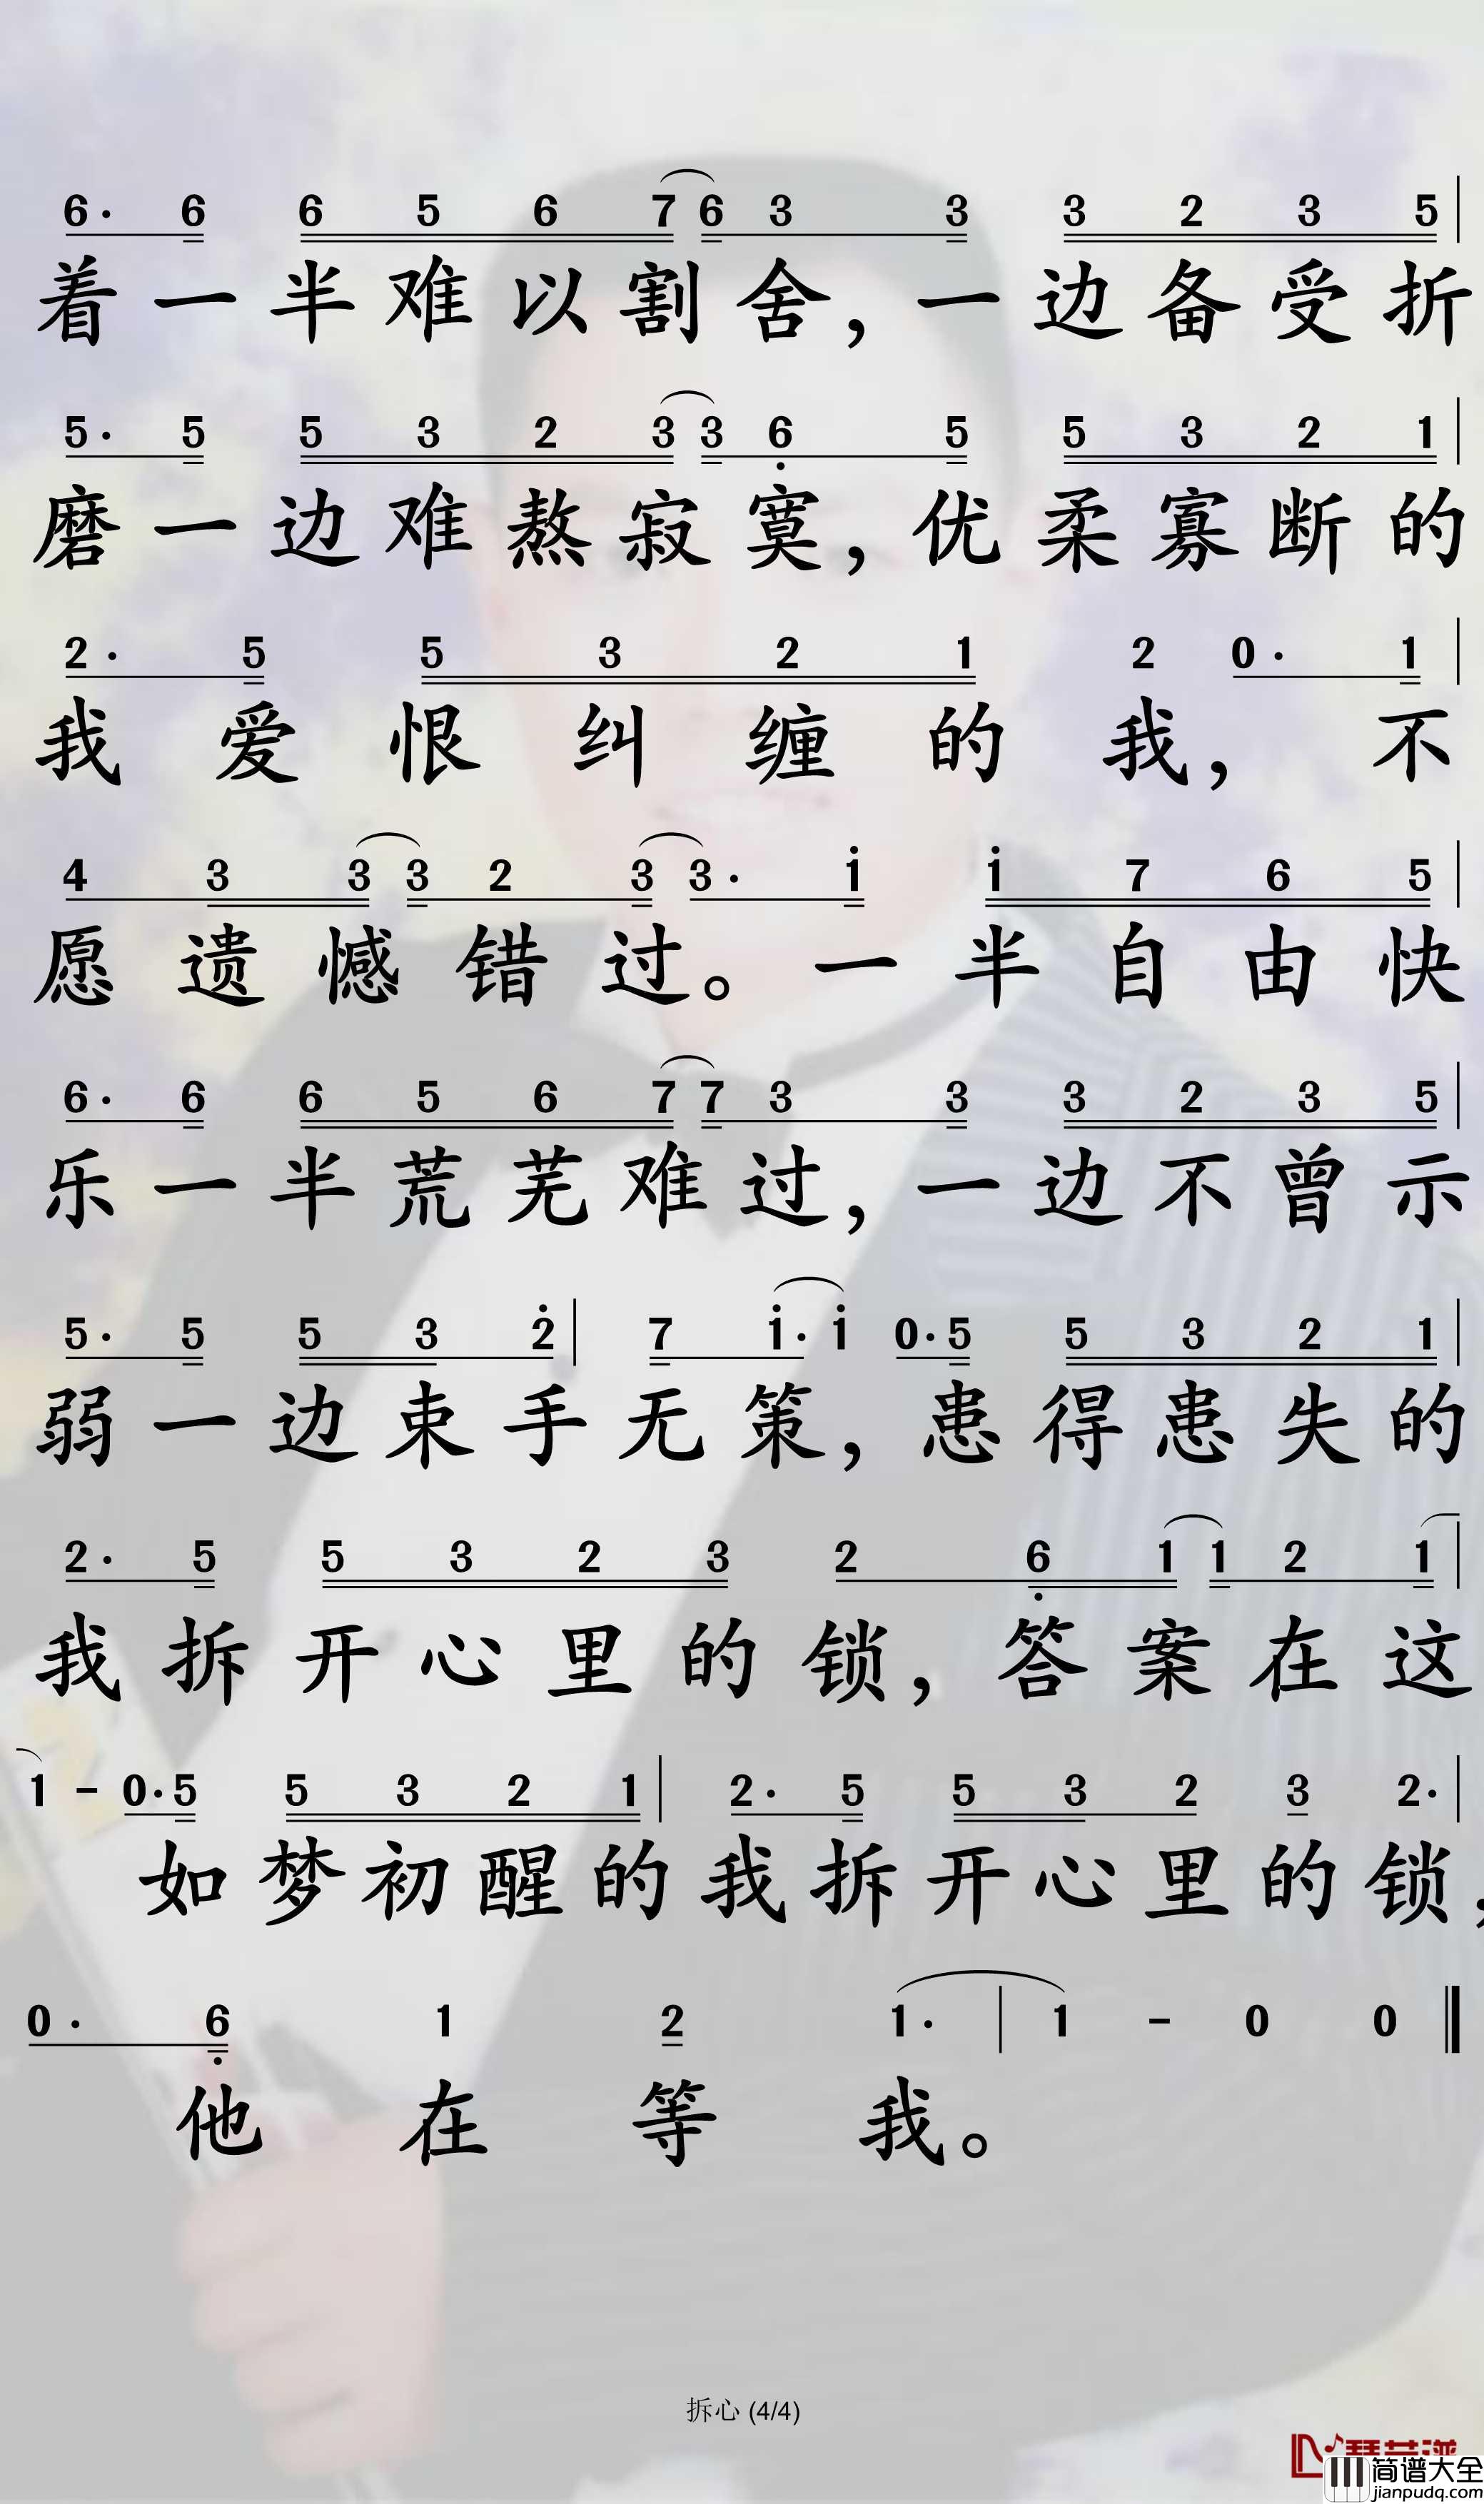 6· 6 6 5 6 7 6 3 3 3 2 3 5
着一半难以割舍，一边备受折
5· 5 5 3 2 3 3 6 5 5 3 2 1
磨一边难熬寂寞，优柔寡断的
2· 5 5 3 2 1 2 0· 1
我爱恨纠缠的我，不
4 3 3 3 2 3 3· 1 1 7 6 5
愿遗憾错过。一半自由快
6· 6 6 5 6 7 7 3 3 3 2 3 5
乐一半荒芜难过，一边不曾示
5· 5 5 3 2 7 1· 1 0· 5 5 3 2 1
弱一边束手无策，患得患失的
2· 5 5 3 2 3 2 6 1 1 2 1
我拆开心里的锁，答案在这
1 - 0· 5 5 3 2 1 2· 5 5 3 2 3 2·
如梦初醒的我拆开心里的锁，
0· 6 1 2 1· 1 - 0 0
他在等我。
拆心 (4/4)
简谱大全
jianpudq.com